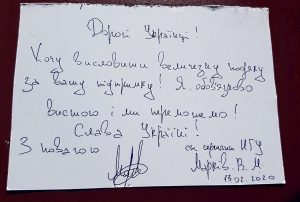 Дорогі Українці!
Хочу висловити величезну подяку
за вашу підтримку! Я обовязково
вистою і ми переможемо!
Слава Україні!
З повагою ст. сержант НГУ
Марків. В. М
13.02.2020